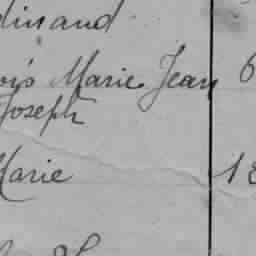 dinand
ois Marie Jean 6
Joseph
Marie 18